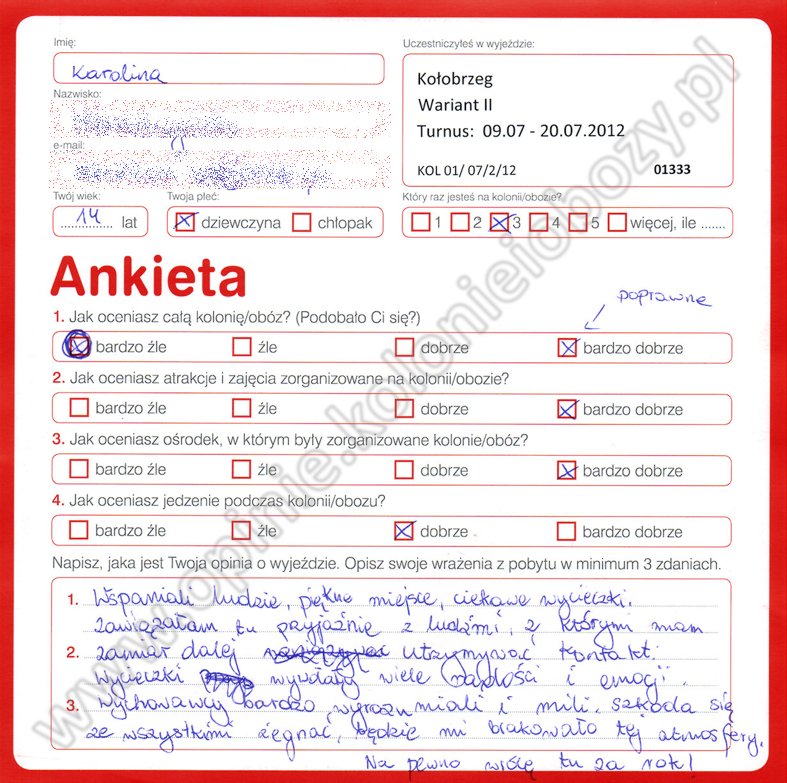 Imię:
Karolina
Uczestniczyłeś w wyjeździe:
Kołobrzeg
Wariant II
Turnus: 09.07 - 20.07.2012
KOL 01/ 07/2/12 01333
Nazwisko:
e-mail:
Twój wiek:
14 lat
Twoja płeć:
dziewczyna chłopak
Który raz jesteś na kolonii/obozie?
1 2 3 4 5 więcej, ile .......
Ankieta
poprawne
1. Jak oceniasz całą kolonię/obóz? (Podobało Ci się?)
bardzo źle źle dobrze bardzo dobrze
2. Jak oceniasz atrakcje i zajęcia zorganizowane na kolonii/obozie?
bardzo źle źle dobrze bardzo dobrze
3. Jak oceniasz ośrodek, w którym były zorganizowane kolonie/obóz?
bardzo źle źle dobrze bardzo dobrze
4. Jak oceniasz jedzenie podczas kolonii/obozu?
bardzo źle źle dobrze bardzo dobrze
Napisz, jaka jest Twoja opinia o wyjeździe. Opisz swoje wrażenia z pobytu w minimum 3 zdaniach.
1. Wspaniali ludzie, piękne miejsce, ciekawe wycieczki.
Zawiązałam tu przyjaźnie z ludźmi, z którymi mam
2. zamiar dalej utrzymywać kontakt.
Wycieczki wywołały wiele radości i emocji.
3. Wychowawcy bardzo wyrozumiali i mili. Szkoda się
ze wszystkimi żegnać, będzie mi brakowało tej atmosfery.
Na pewno wrócę tu za rok!
www.opinie.kolonieiobozy.pl